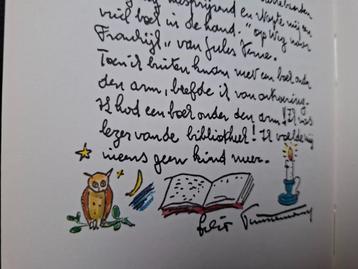 boek in de hand. "op weg naar
Frankrijk" van Jules Verne.
Toen ik buiten kwam met een boek onder
den arm, beefde ik van ontroering.
Ik had een boek onder den arm! Ik was
lezer van de bibliotheek! Ik voelde mij
ineens geen kind meer.
Felix Timmermans